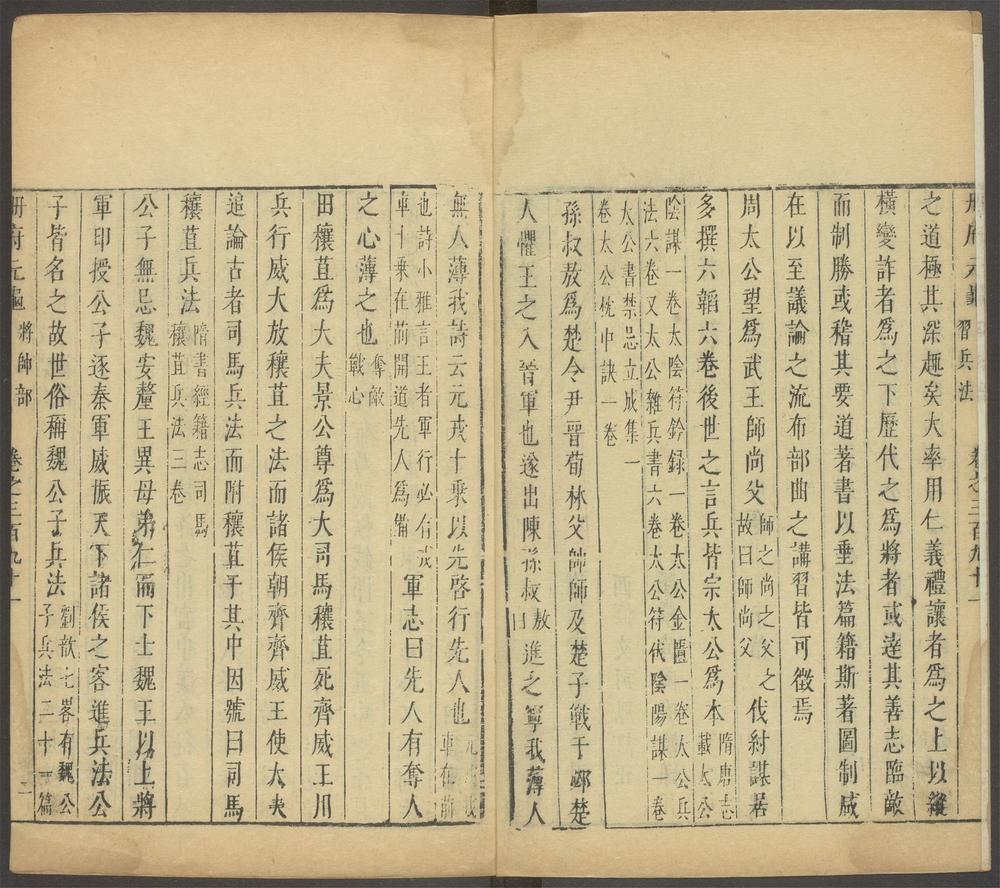 冊府元龜 習兵法 卷之三百九十一
之道極其深趣矣大率用仁義禮讓者爲之上以縱
橫變詐者爲之下歷代之爲將者或達其善志臨敵
而制勝或稽其要道著書以垂法篇籍斯著圖制咸
在以至議論之流布部曲之講習皆可徵焉
周太公望爲武王師尚父師之尚之父之故曰師尚父伐紂謀居
多撰六韜六卷後世之言兵皆宗太公爲本隋唐志載太公
陰謀一卷太陰符鈐録一卷太公金匱一卷太公兵
法六卷又太公雜兵書六卷太公符伏陰陽謀一卷
太公書禁忌立成集一
卷太公枕中訣一卷
孫叔敖爲楚令尹晉荀林父帥師及楚子戰于邲楚
人懼王之入晉軍也遂出陳孫叔敖曰進之寧我薄人
無人薄我詩云元戎十乘以先啓行先人也元戎戎車在前
也詩小雅言王者軍行必有戎
車十乘在前開道先人爲備軍志曰先人有奪人
之心薄之也奪敵戰心
田穰苴爲大夫景公尊爲大司馬穰苴死齊威王用
兵行威大放穰苴之法而諸侯朝齊齊威王使大夫
追論古者司馬兵法而附穰苴于其中因號曰司馬
穰苴兵法隋書經籍志司馬穰苴兵法三卷
公子無忌魏安釐王異母弟仁而下士魏王以上將
軍印授公子逐秦軍威振天下諸侯之客進兵法公
子皆名之故世俗稱魏公子兵法劉歆七畧有魏公子兵法二十一篇
冊府元龜 將帥部 卷之三百九十一 二